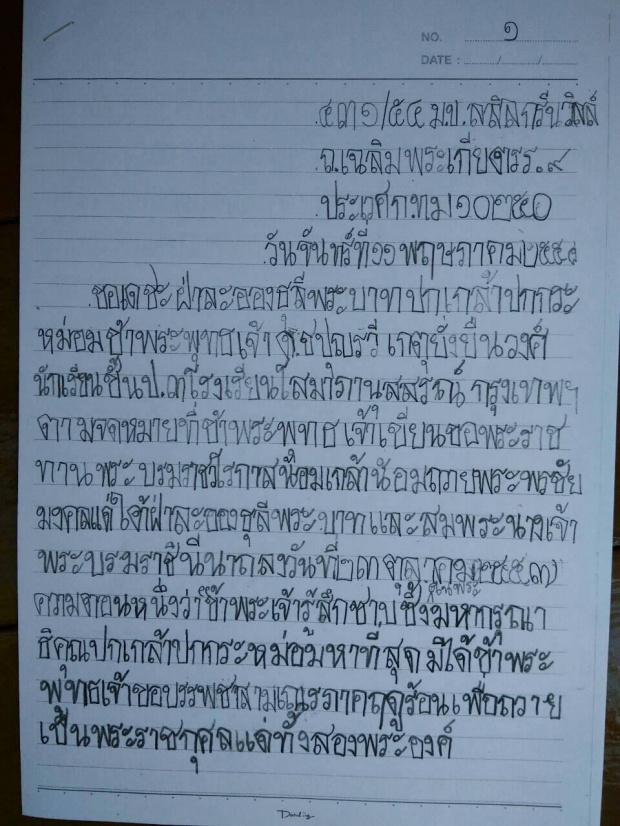 NO. ๑
DATE : / /
๔๓๑/๕๔ มบ. สลิลกรีนวิลล์
ถ.เฉลิมพระเกียรติร.๙
ประเวศ กทม ๑๐๒๕๐
วันจันทร์ที่๑๑ พฤษภาคม๒๕๕๘
ขอเดชะ ฝ่าละอองธุลีพระบาทปกเกล้าปกกระ
หม่อม ข้าพระพุทธเจ้า เกตุยั่งยืนวงศ์
นักเรียนชั้นป.๓โรงเรียนโสมาภานสสรณ์ กรุงเทพฯ
ตามจดหมายที่ข้าพระพุทธเจ้าเขียนขอพระราช
ทานพระบรมราชวโรกาสน้อมเกล้าน้อมถวายพระพรชัย
มงคลแด่ใต้ฝ่าละอองธุลีพระบาทและสมพระนางเจ้า
พระบรมราชินีนาถลงวันที่๒๓ ตุลาคม๒๕๕๗
ความตอนหนึ่งว่าข้าพระเจ้ารู้สึกซาบซึ้งในพระมหากรุณา
ธิคุณปกเกล้าปกกระหม่อมหาที่สุดมิได้ข้าพระ
พุทธเจ้าขอบรรพชาสามเณรภาคฤดูร้อนเพื่อถวาย
เป็นพระราชกุศลแด่ทั้งสองพระองค์